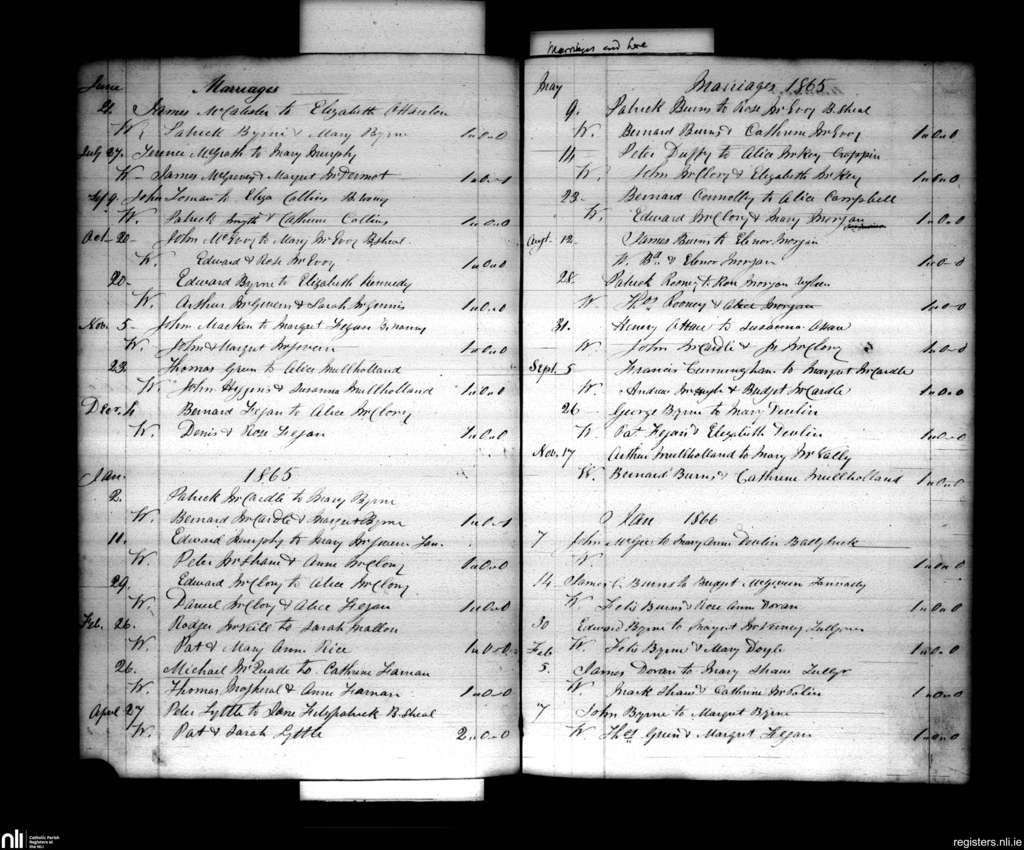 Marriages and here
June Marriages
21. James McAlister to Elizabeth O'Hanlon
W. Patrick Byrne & Mary Byrne 1"0"0
July 27. Terence McGrath to Mary Murphy
W. James & Margret McDermot
Sept 9. John Toman to Eliza Collins
W. Patrick Smyth & Catherine Collins 1"0"0
Oct. 20. John McEvoy to Mary McEvoy B.sheal
W. Edward & Rose McEvoy 1"0"0
20. Edward Byrne to Elizabeth Kennedy
W. Arthur McGivern & Sarah 1"0"0
Nov. 5. John Macken to Margret Fegan
W. John & Margret McGivern 1"0"0
23. Thomas Green to Alice Mullholland
W. John Higgins & Susanna Mullholland 1"0"0
Decr. 4 Bernard Fegan to Alice McClory
W. Denis & Rose Fegan 1"0"0
Jan. 1865
2. Patrick McCardle to Mary Byrne
W. Bernard McCardle & Margret Byrne
11. Edward Murphy to Mary
W. Peter McShane & Anne McClory 1"0"0
29. Edward McClory to Alice McClory
W. Daniel McClory & Alice Fegan 1"0"0
Feb. 26. Rodger McNeill to Sarah Fallon
W. Pat & Mary Anne Rice 1"0"0
26. Michael McQuade to Cathrine Hanan
W. Thomas & Anne Hanan 1"0"0
April 27 Peter Lyttle to Jane Fitzpatrick B.sheal
W. Pat & Sarah Lyttle 2"0"0
May Marriages 1865
9. Patrick Burns to Rose McEvoy B.sheal
W. Bernard Burns & Cathrine McEvoy 1"0"0
14 Peter Duffy to Alice McKey
W. John McClory & Elizabeth McKey 1"0"0
23. Bernard Connolly to Alice Campbell
W. Edward McClory & Mary Morgan 1"0"0
Augt. 12. James Burns to Elenor Morgan
W. & Elenor Morgan 1"0"0
28. Patrick Rooney to Rose Morgan
W. Thos Rooney & Alice Morgan 1"0"0
31. Henry O'Hare to Susanna
W. John McCardle & McClory 1"0"0
Sept. 5 Francis Cunningham to Margret McCardle
W. Andrew & Bridget McCardle 1"0"0
26 George Byrne to Mary Devlin
W. Pat Fegan & Elizabeth Devlin 1"0"0
Nov. 17 Arthur Mullholland to Mary McNally
W. Bernard Burns & Cathrine Mullholland 1"0"0
Jan 1866
7 John McGee to Mary Anne Devlin
W. 1"0"0
14 James C. Burns to Bridget McGivern
W. Felix Burns & Rose Ann Doran 1"0"0
30 Edward Byrne to Margret
Feb. W. Felix Byrne & Mary Doyle 1"0"0
5. James Doran to Mary Shaw
W. Mark Shaw & Cathrine 1"0"0
7 John Byrne to Margret Byrne
W. Thos Green & Margret Fegan 1"0"0
nli
Catholic Parish
Registers at
the NLI
registers.nli.ie